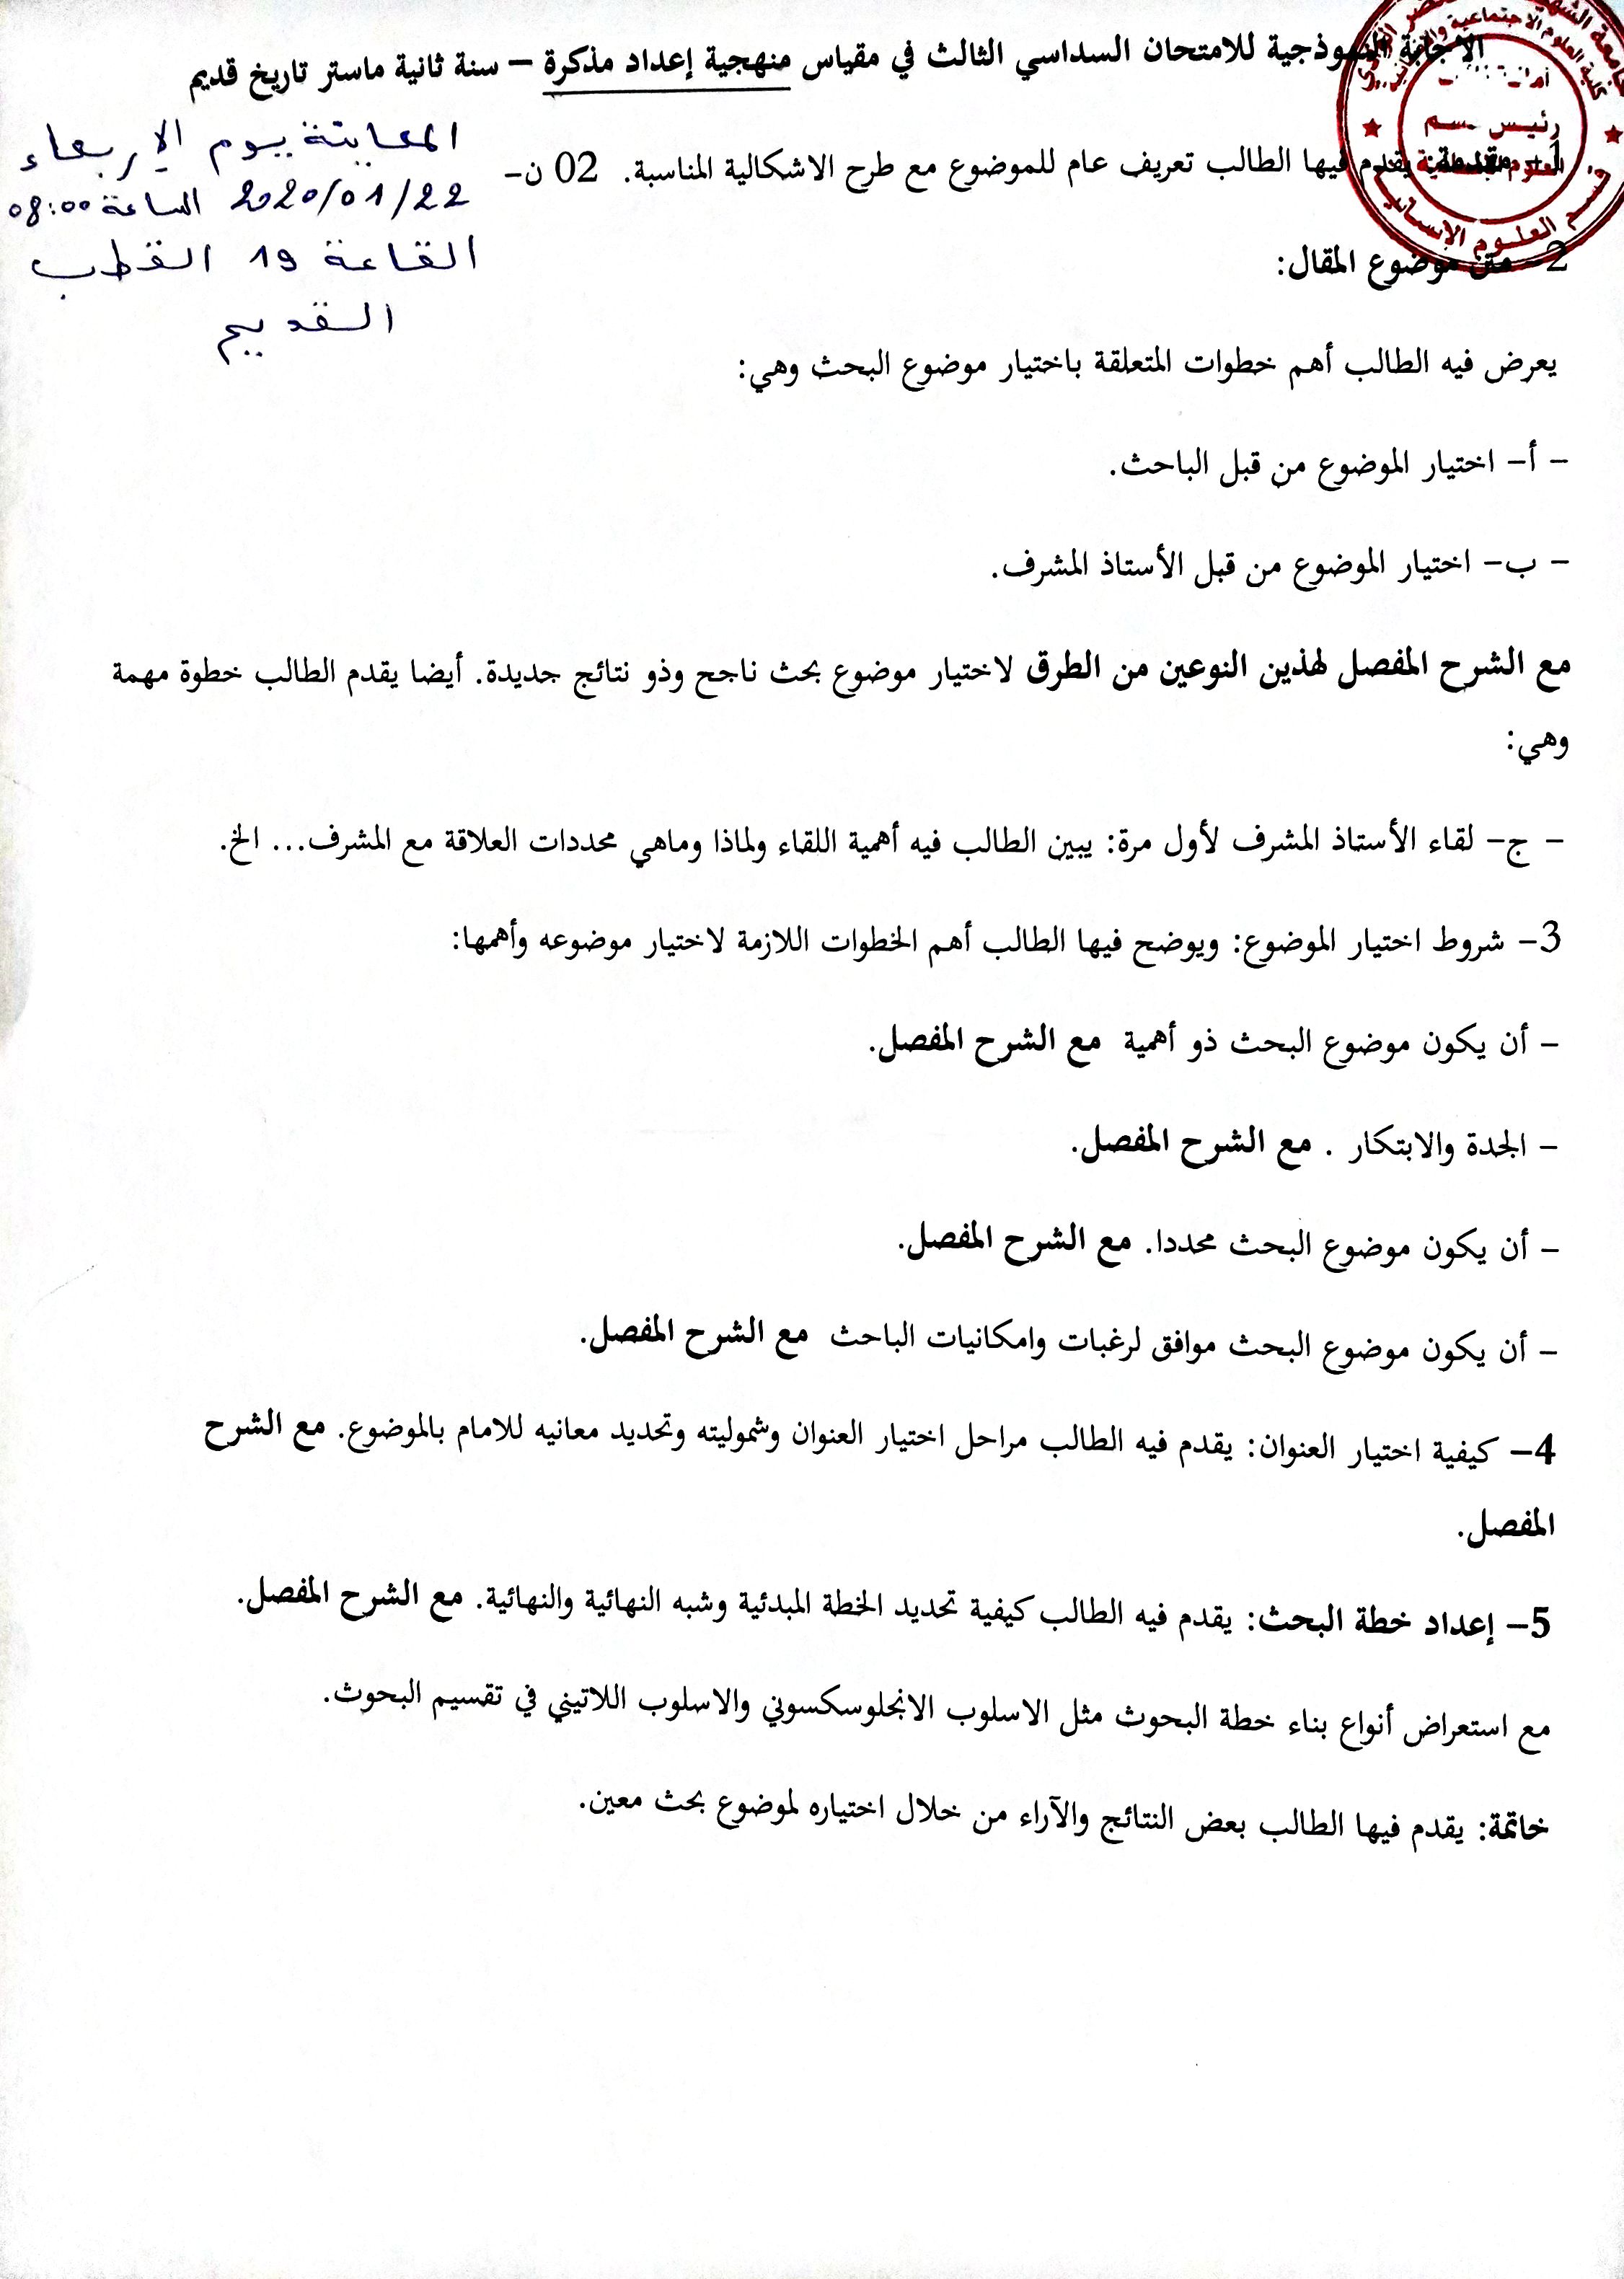 الاجابة النموذجية للامتحان السداسي الثالث في مقياس منهجية إعداد مذكرة – سنة ثانية ماستر تاريخ قديم
المعاينة يوم الاربعاء
2020/01/22 الساعة 08:00
القاعة 19 القطب
القديم
رئيس قسم
قسم العلوم الإنسانية
1- مقدمة: يقدم فيها الطالب تعريف عام للموضوع مع طرح الاشكالية المناسبة. 02 ن-
2- متن موضوع المقال:
يعرض فيه الطالب أهم خطوات المتعلقة باختيار موضوع البحث وهي:
- أ- اختيار الموضوع من قبل الباحث.
- ب- اختيار الموضوع من قبل الأستاذ المشرف.
مع الشرح المفصل لهذين النوعين من الطرق لاختيار موضوع بحث ناجح وذو نتائج جديدة. أيضا يقدم الطالب خطوة مهمة
وهي:
- ج- لقاء الأستاذ المشرف لأول مرة: يبين الطالب فيه أهمية اللقاء ولماذا وماهي محددات العلاقة مع المشرف... الخ.
3- شروط اختيار الموضوع: ويوضح فيها الطالب أهم الخطوات اللازمة لاختيار موضوعه وأهمها:
- أن يكون موضوع البحث ذو أهمية مع الشرح المفصل.
- الجدة والابتكار . مع الشرح المفصل.
- أن يكون موضوع البحث محددا. مع الشرح المفصل.
- أن يكون موضوع البحث موافق لرغبات وامكانيات الباحث مع الشرح المفصل.
4- كيفية اختيار العنوان: يقدم فيه الطالب مراحل اختيار العنوان وشموليته وتحديد معانيه للامام بالموضوع. مع الشرح
المفصل.
5- إعداد خطة البحث: يقدم فيه الطالب كيفية تحديد الخطة المبدئية وشبه النهائية والنهائية. مع الشرح المفصل.
مع استعراض أنواع بناء خطة البحوث مثل الاسلوب الانجلوسكسوني والاسلوب اللاتيني في تقسيم البحوث.
خاتمة: يقدم فيها الطالب بعض النتائج والآراء من خلال اختياره لموضوع بحث معين.